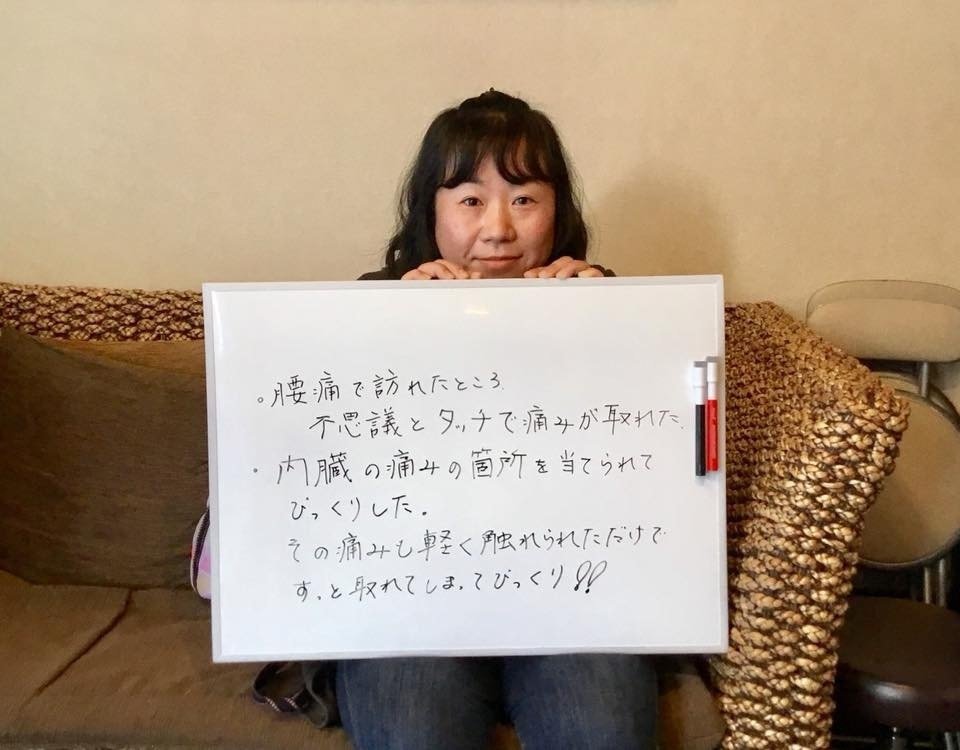 。腰痛で訪れたところ、
不思議とタッチで痛みが取れた。
・内臓の痛みの箇所を当てられて
びっくりした。
その痛みも軽く触れられただけで
すっと取れてしまってびっくり!!